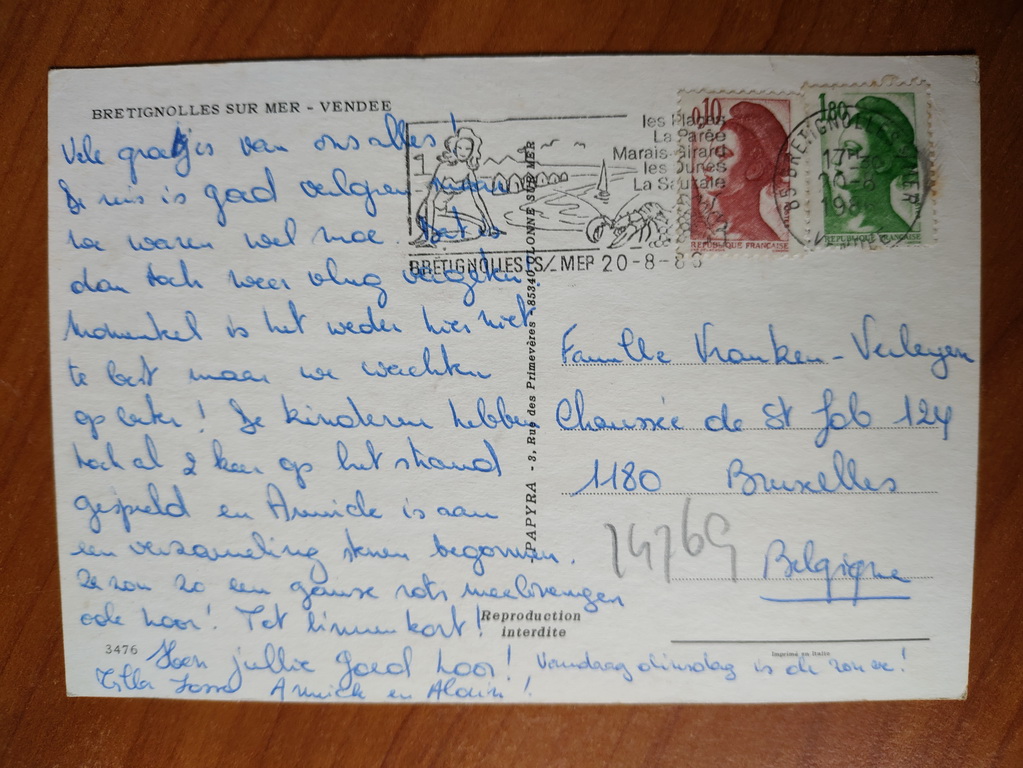 BRETIGNOLLES SUR MER - VENDEE
Vele groetjes van ons alles!
De reis is goed verlopen maar
we waren wel moe. Het is
dan toch weer vlug vergeten.
Momenteel is het weder hier niet
te best maar we wachten
op beter! De kinderen hebben
toch al 2 keer op het strand
gespeeld en Annick is aan
een verzameling stenen begonnen.
Ze zou zo een ganse rots meebrengen
ook hoor! Tot binnenkort!
Hou jullie goed hoor! Vandaag dinsdag is de zon er!
Annick en Alain!
3476
les Plages
La Parée
Marais Girard
les Dunes
La Sauzaie
BRETIGNOLLES S/ MER 20-8-8
0,10
REPUBLIQUE FRANÇAISE
1,80
REPUBLIQUE FRANÇAISE
85 BRETIGNOLLES MER
17H
20-8
198
PAPYRA - 3, Rue des Primevères - 85340 OLONNE SUR MER
Famille Vranken - Verleyen
Chaussée de St Job 124
1180 Bruxelles
Belgique
74769
Reproduction
interdite
Imprimé en Italie